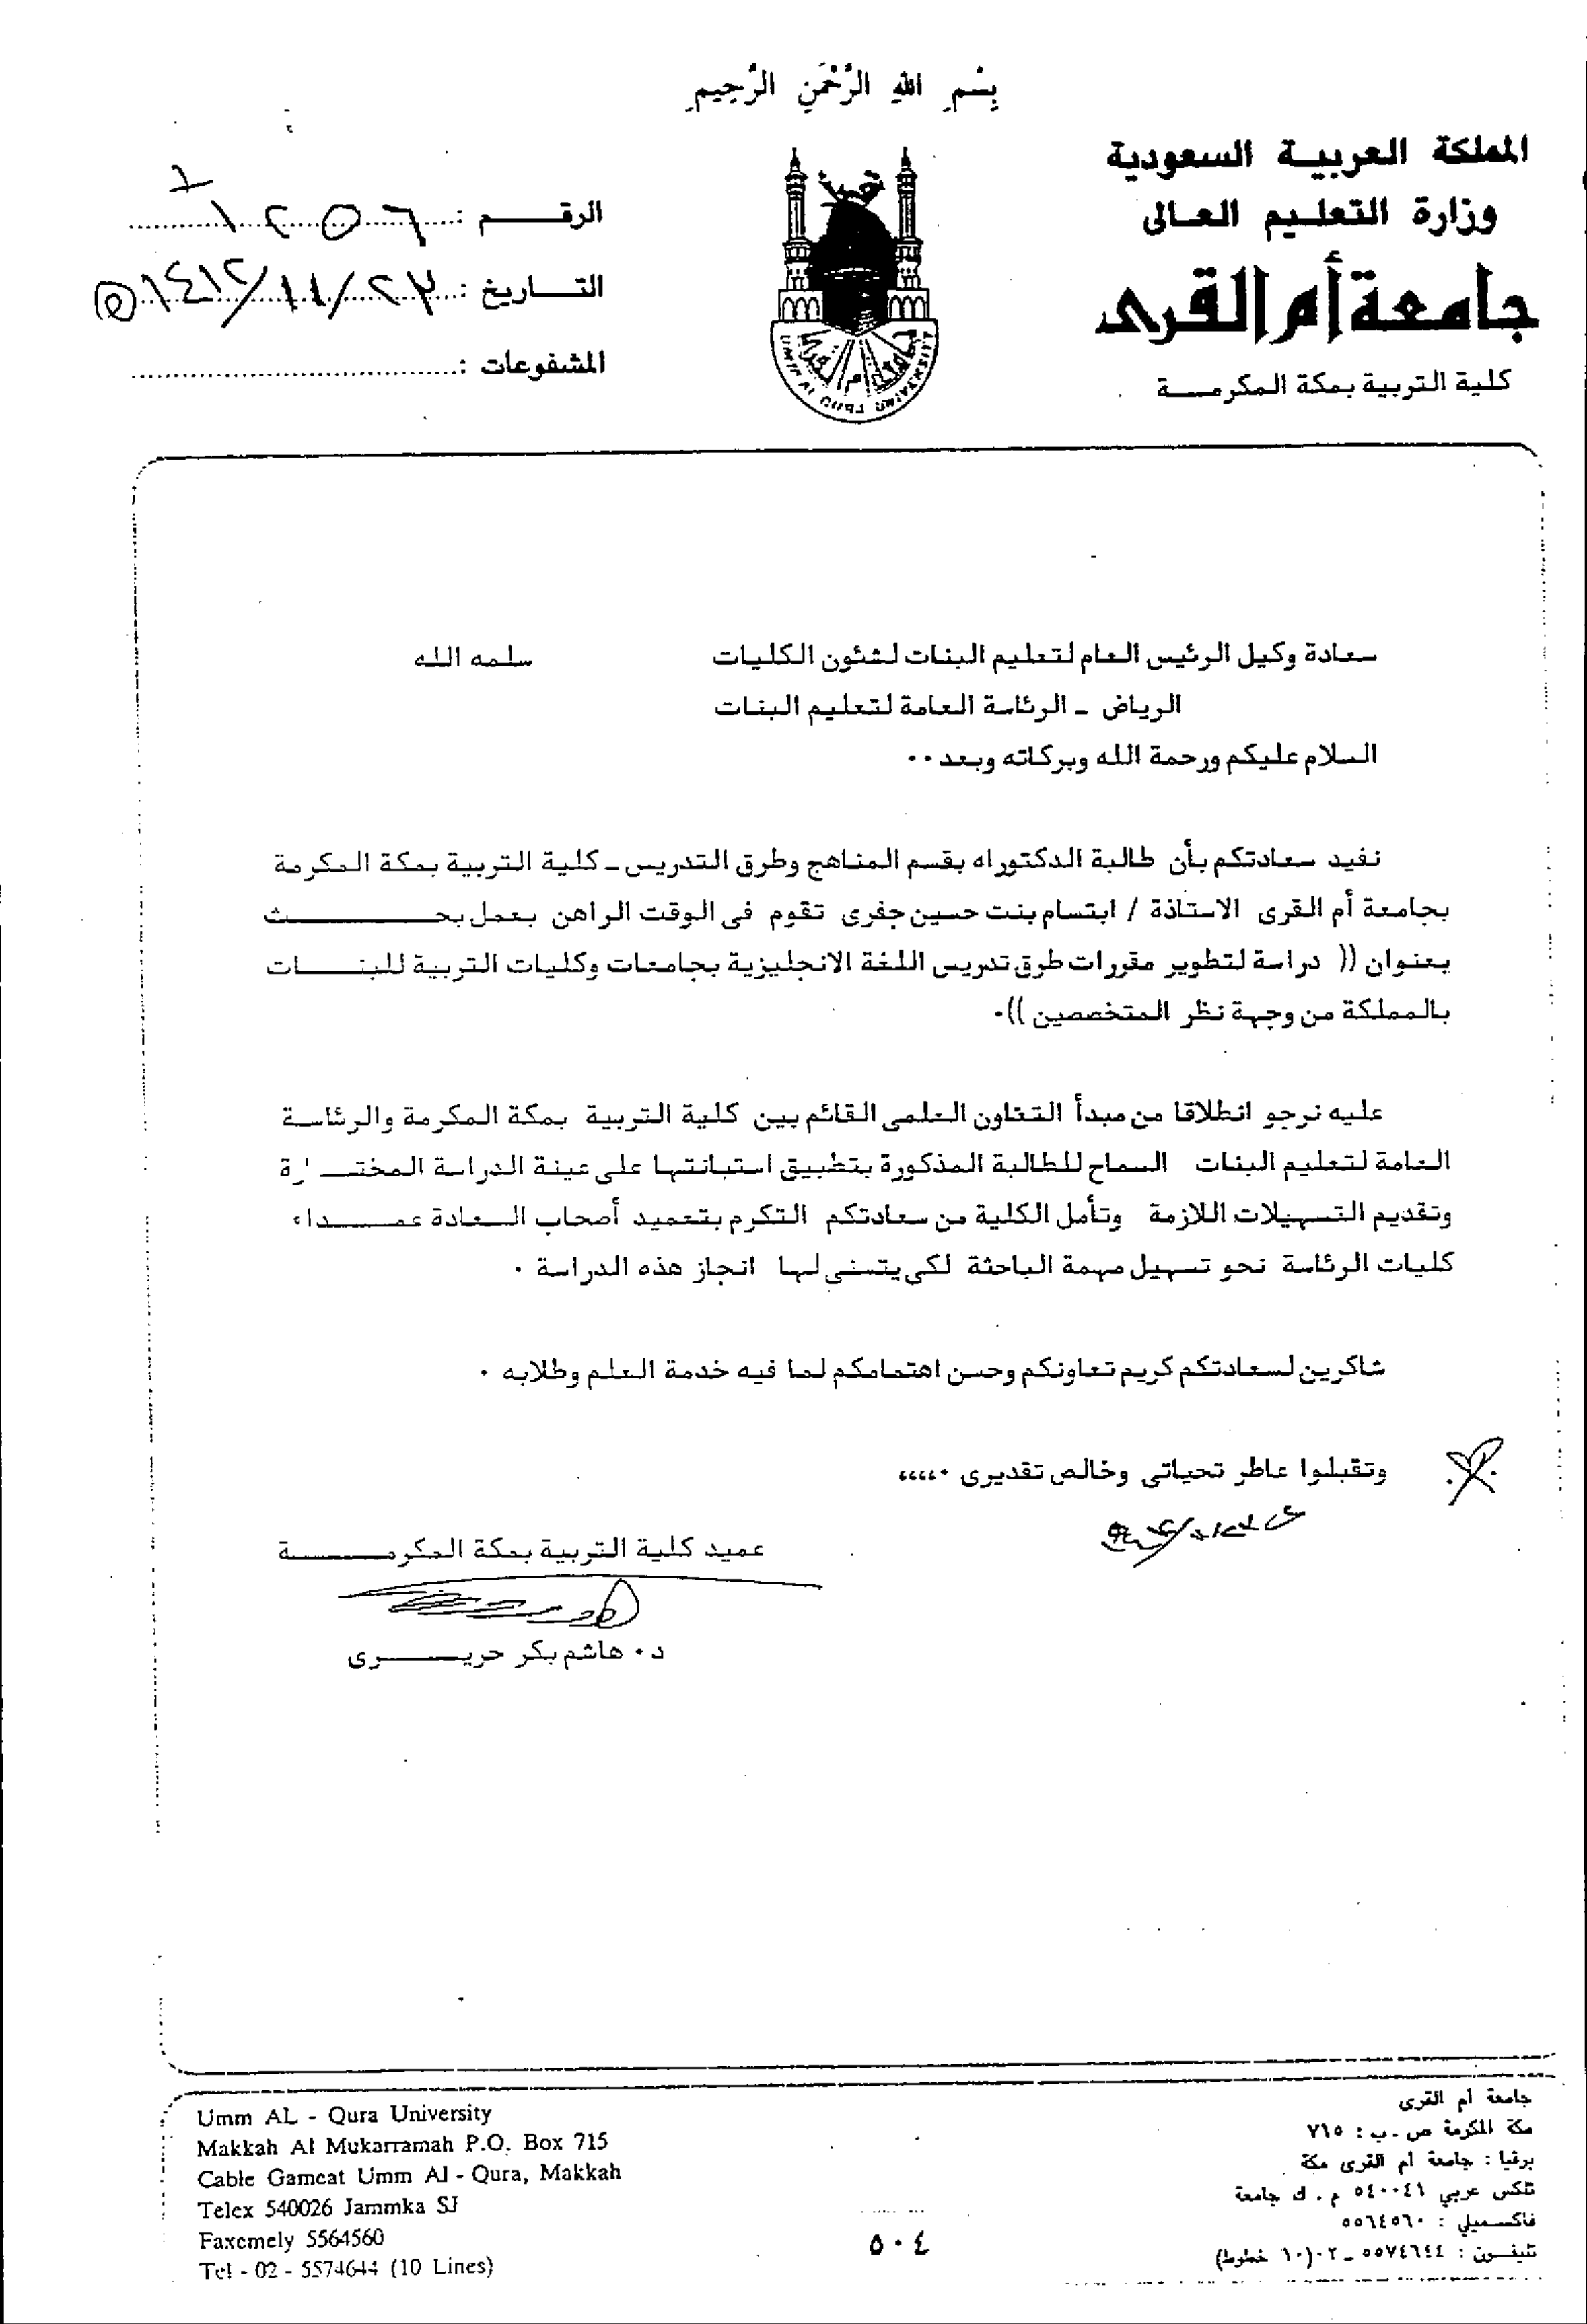 بِسْمِ اللهِ الرَّحْمَنِ الرَّحِيمِ
المملكة العربية السعودية
وزارة التعليم العالى
جامعة أم القرى
كلية التربية بمكة المكرمـــة
الرقــــم :
التـــاريخ :
المشفوعات :
UMM AL QURA UNIVERSITY
سعادة وكيل الرئيس العام لتعليم البنات لشئون الكليات سلمه الله
الرياض ـ الرئاسة العامة لتعليم البنات
السلام عليكم ورحمة الله وبركاته وبعد ٠٠
نفيد سعادتكم بأن طالبة الدكتوراه بقسم المناهج وطرق التدريس ـ كلية التربية بمكة المكرمة
بجامعة أم القرى الاستاذة / ابتسام بنت حسين جفرى تقوم فى الوقت الراهن بعمل بحـــــــث
بعنوان (( دراسة لتطوير مقررات طرق تدريس اللغة الانجليزية بجامعات وكليات التربية للبنـــــات
بالمملكة من وجهة نظر المتخصصين ))٠
عليه نرجو انطلاقا من مبدأ التعاون العلمى القائم بين كلية التربية بمكة المكرمة والرئاسة
العامة لتعليم البنات السماح للطالبة المذكورة بتطبيق استبانتها على عينة الدراسة المختـــارة
وتقديم التسهيلات اللازمة وتأمل الكلية من سعادتكم التكرم بتعميد أصحاب السعادة عمـــــداء
كليات الرئاسة نحو تسهيل مهمة الباحثة لكى يتسنى لها انجاز هذه الدراسة ٠
شاكرين لسعادتكم كريم تعاونكم وحسن اهتمامكم لما فيه خدمة العلم وطلابه ٠
وتقبلوا عاطر تحياتى وخالص تقديرى ٠،،،،،
عميد كلية التربية بمكة المكرمـــــــة
د ٠ هاشم بكر حريـــــــرى
Umm AL - Qura University
Makkah Al Mukarramah P.O. Box 715
Cable Gameat Umm Al - Qura, Makkah
Telex 540026 Jammka SJ
Faxemely 5564560
Tel - 02 - 5574644 (10 Lines)
جامعة أم القرى
مكة المكرمة ص . ب : ٧١٥
برقيا : جامعة أم القرى مكة
تلكس عربي ٥٤٠٠٤١ م . ك جامعة
فاكسميلي : ٥٥٦٤٥٦٠
تليفــون : ٥٥٧٤٦٤٤ ـ ٠٢ (١٠ خطوط)
٥٠٤